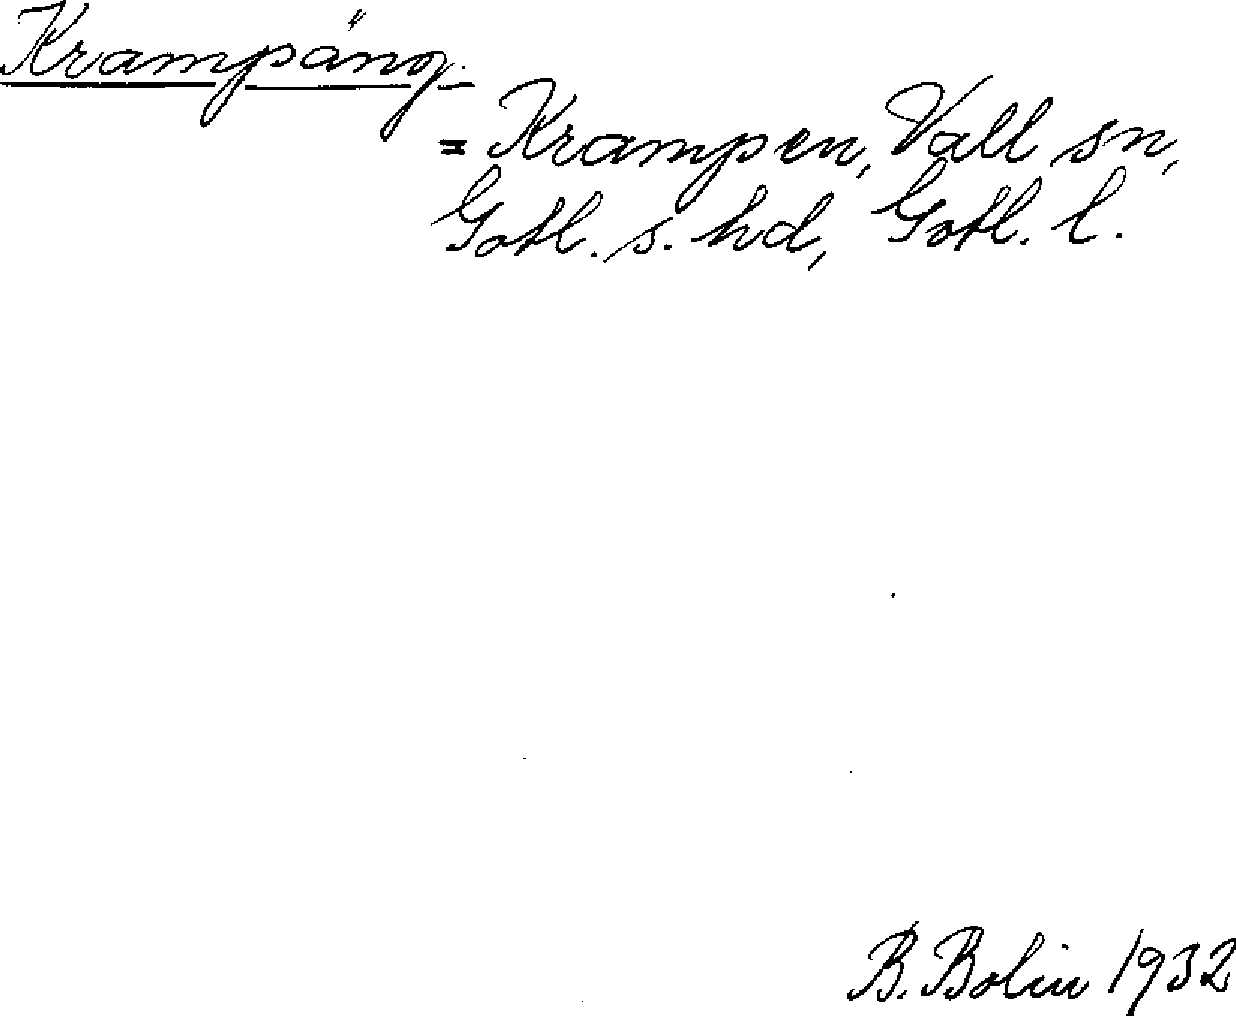 Krampäng.
= Krampen, Vall sn,
Gotl. s. hd, Gotl. l.
B. Bolin 1932